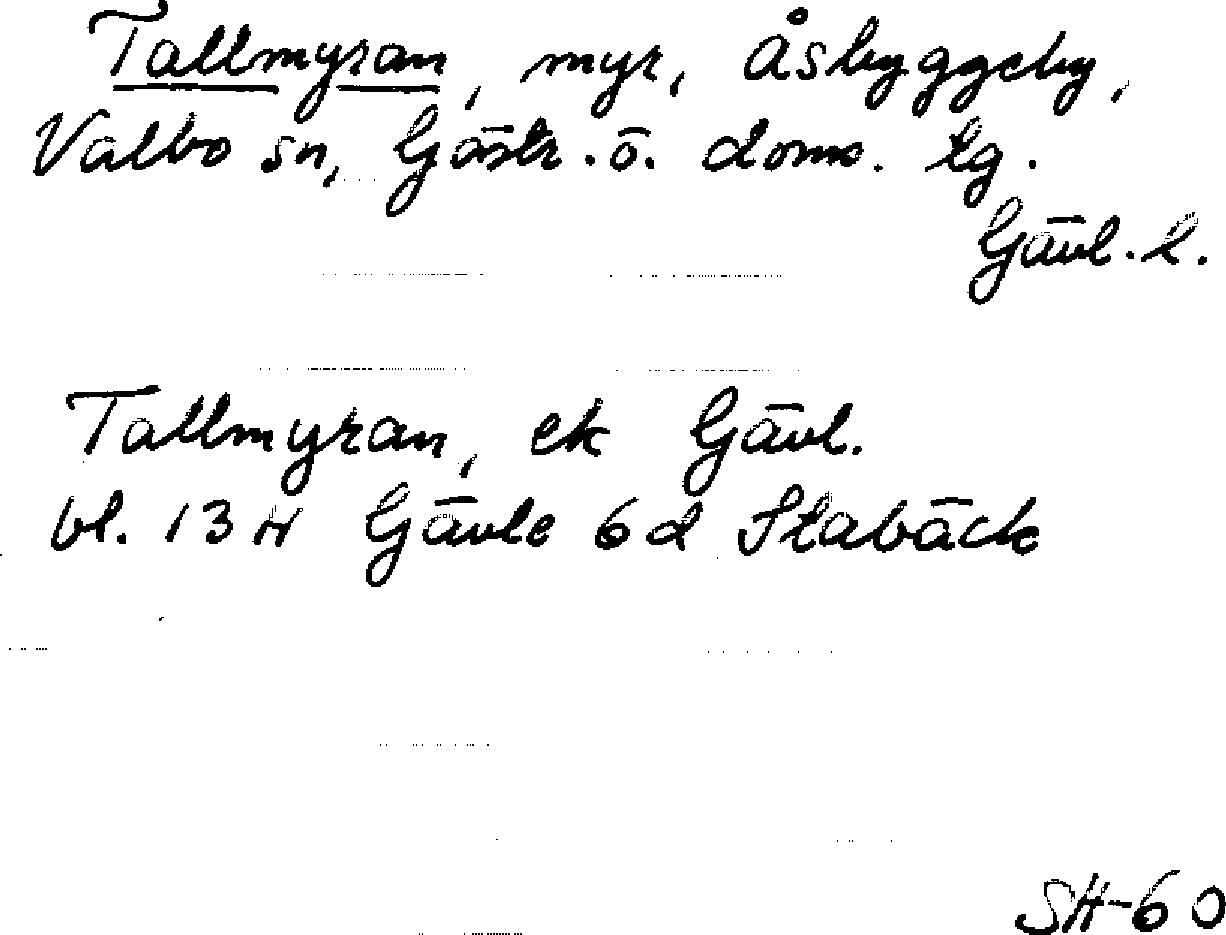 Tallmyran, myr, Åsbyggeby,
Valbo sn, Gästr. ö. doms. tg.
Gävl. l.
Tallmyran, ek Gävl.
bl. 13 H Gävle 6d Stabäck
SH-60